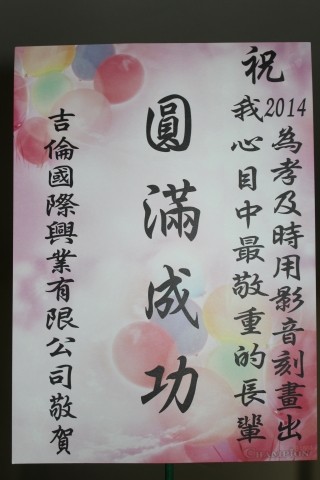 祝
2014為孝及時用影音刻畫出
我心目中最敬重的長輩
圓滿成功
吉倫國際興業有限公司敬賀